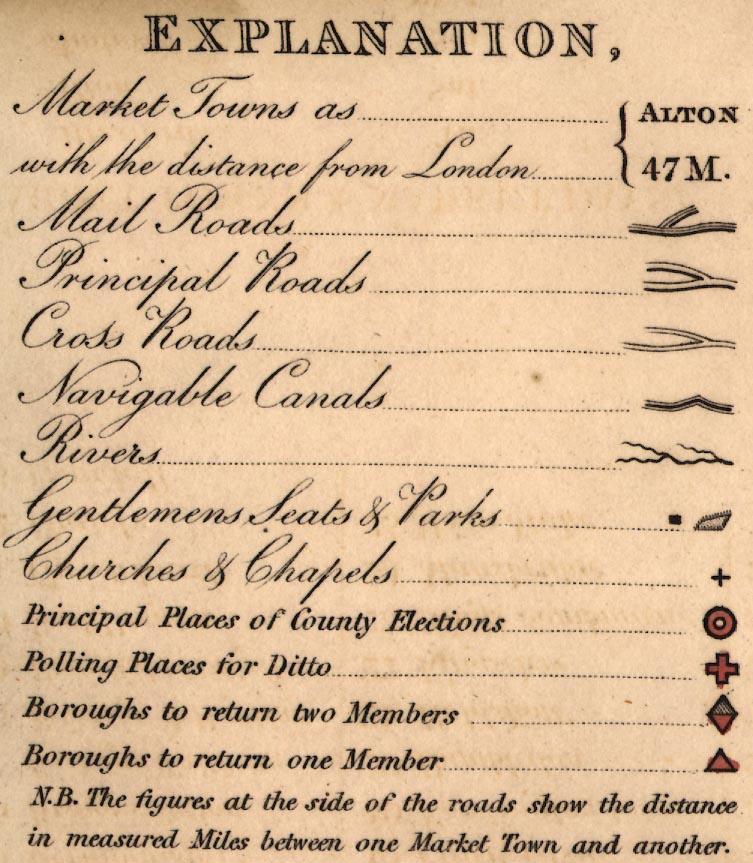 EXPLANATION,
Market Towns as ALTON
with the distance from London 47 M.
Mail Roads
Principal Roads
Cross Roads
Navigable Canals
Rivers
Gentlemens Seats & Parks
Churches & Chapels
Principal Places of County Elections
Polling Places for Ditto
Boroughs to return two Members
Boroughs to return one Member
N.B. The figures at the side of the roads show the distance
in measured Miles between one Market Town and another.